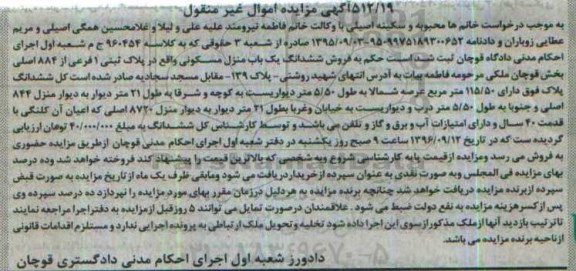 ۵۱۲/۱۹آگهی مزایده اموال غیر منقول
به موجب درخواست خانم ها محبوبه و سکینه اصیلی با وکالت خانم فاطمه نیرومند علیه علی و لیلا و غلامحسین همگی اصیلی و مریم
عطایی زوباران و دادنامه ۹۵۰۹۹۷۵۱۸۹۳۰۰۶۵۲-۱۳۹۵/۰۹/۰۳ صادره از شعبه ۳ حقوقی که به کلاسه ۹۶۰۴۵۴ ج م شعبه اول اجرای
احکام مدنی دادگاه قوچان ثبت شده است حکم به فروش ششدانگ یک باب منزل مسکونی واقع در پلاک ثبتی ۱ فرعی از ۸۸۴ اصلی
بخش قوچان ملکی مرحومه فاطمه بیات به آدرس انتهای شهید روشنی- پلاک ۱۳۹- مقابل مسجد سجادیه صادر شده است کل ششدانگ
پلاک فوق دارای ۱۱۵/۵۰ متر مربع عرصه شمالا به طول ۵/۵۰ متر دیواریست به کوچه و شرقا به طول ۲۱ متر دیوار به دیوار منزل ۸۴۴
اصلی و جنوبا به طول ۵/۵۰ متر درب و دیواریست به خیابان وغربا بطول ۲۱ متر دیوار به دیوار منزل ۸۷۲۰ اصلی که اعیان آن کلنگی با
قدمت ۴۰ سال و دارای امتیازات آب و برق و گاز و تلفن می باشد و توسط کارشناس کل ششدانگ به مبلغ ۴۰/۰۰۰/۰۰۰ تومان ارزیابی
گردیده ست که در تاریخ ۱۳۹۶/۰۹/۱۲ ساعت ۹ صبح روز یکشنبه در دفتر شعبه اول اجرای احکام مدنی قوچان ازطریق مزایده حضوری
به فروش می رسد ومزایده ازقیمت پایه کارشناسی شروع و به شخصی که بالاترین قیمت را پیشنهاد کند فروخته خواهد شد وده درصد
بهای مزایده فی المجلس وبه صورت نقدی به عنوان سپرده ازخریداردریافت می شود ومابقی ظرف یک ماه از تاریخ مزایده به صورت قبض
سپرده ازبرنده مزایده دریافت خواهد شد چنانچه برنده مزایده به هردلیل درزمان مقرر بهای مورد مزایده را نپردازد ده درصد سپرده وی
پس ازکسرهزینه مزایده به نفع دولت ضبط می شود . علاقمندان درصورت تمایل می توانند ۵ روزقبل ازمزایده به دفتراجرا مراجعه نمایند
تاترتیب بازدید آنها ازملک مذکورازسوی این اجرا داده شود تخلیه وتحویل ملک ارتباطی به پرونده اجرایی ندارد و مستلزم اقدامات قانونی
ازناحیه برنده مزایده می باشد.
دادورز شعبه اول اجرای احکام مدنی دادگستری قوچان